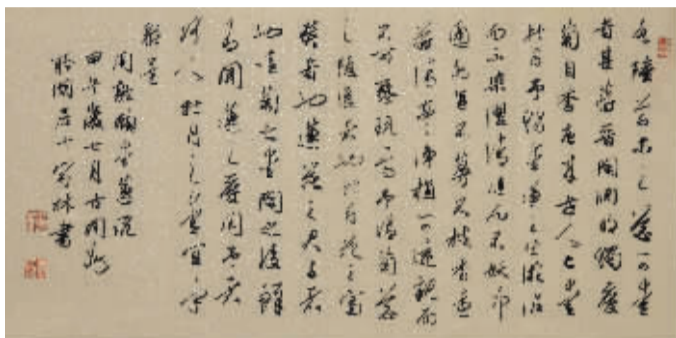 水陸草木之花可愛
者甚蕃晉陶淵明獨愛
菊自李唐來世人甚愛
牡丹予獨愛蓮之出淤泥
而不染濯清漣而不妖中
通外直不蔓不枝香遠
益清亭亭淨植可遠觀而
不可褻玩焉予謂菊花
之隱逸者也牡丹花之富
貴者也蓮花之君子者
也噫菊之愛陶之後鮮
有聞蓮之愛同予者
何人牡丹之愛宜乎
眾矣
周敦頤愛蓮說
甲午歲七月古閩
書